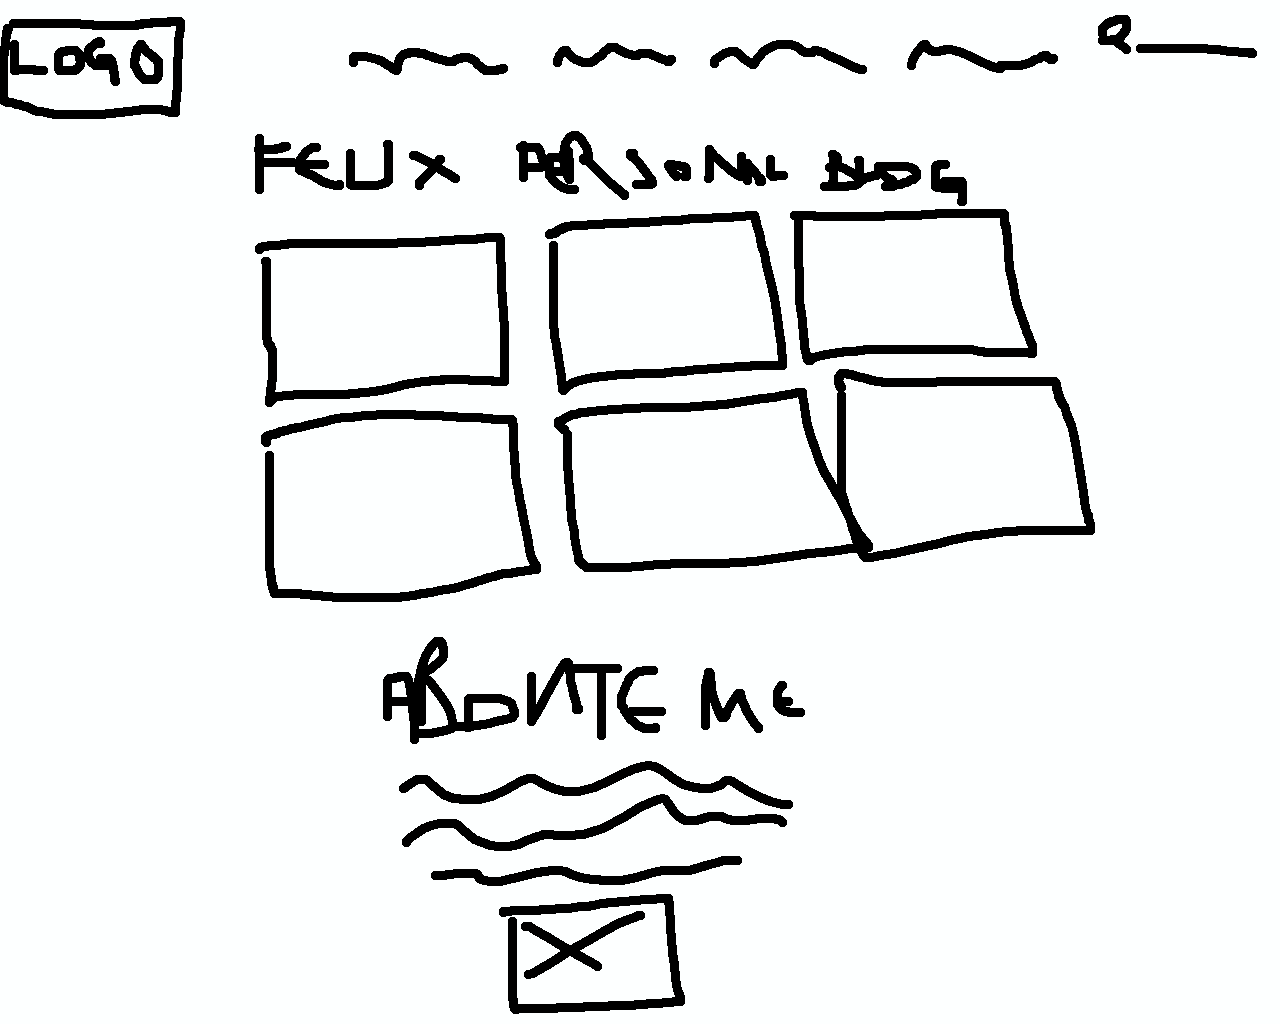 LOGO
FELIX PERSONAL BLOG
ABOUTE ME